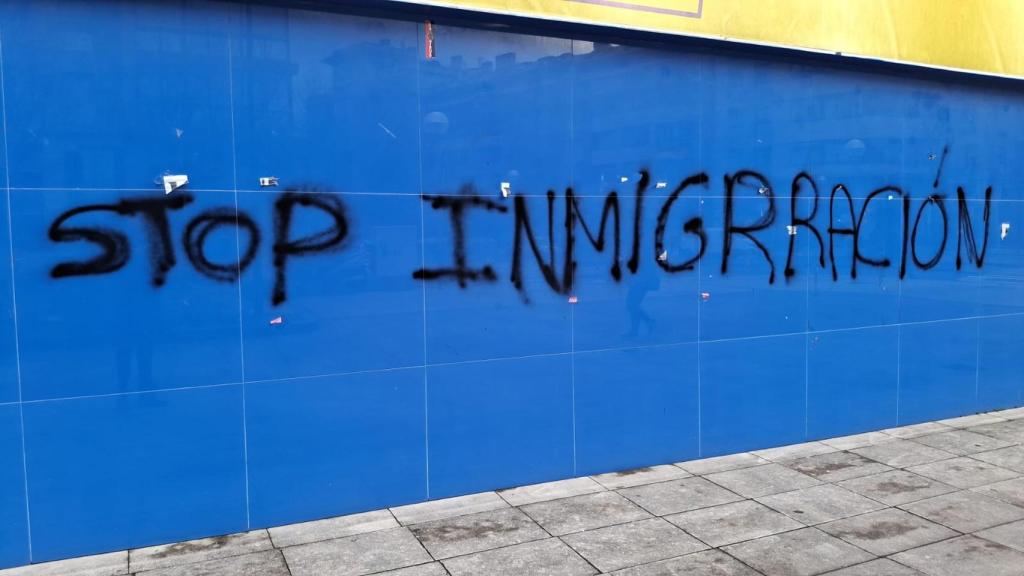 STOP INMIGRRACIÓN